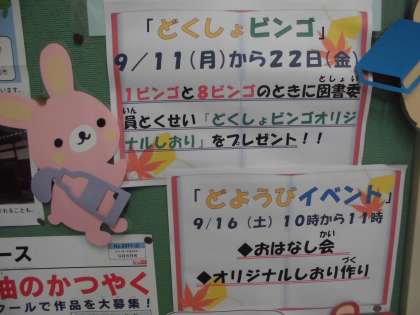 「どくしょビンゴ」
9/11(月)から22日(金)
1ビンゴと8ビンゴのときに図書委
としょい
員とくせい「どくしょビンゴオリジ
いん
ナルしおり」をプレゼント!!
「どようびイベント」
9/16(土)10時から11時
◆おはなし会
かい
◆オリジナルしおり作り
づく
ース
のかつやく
ールで作品を大募集!